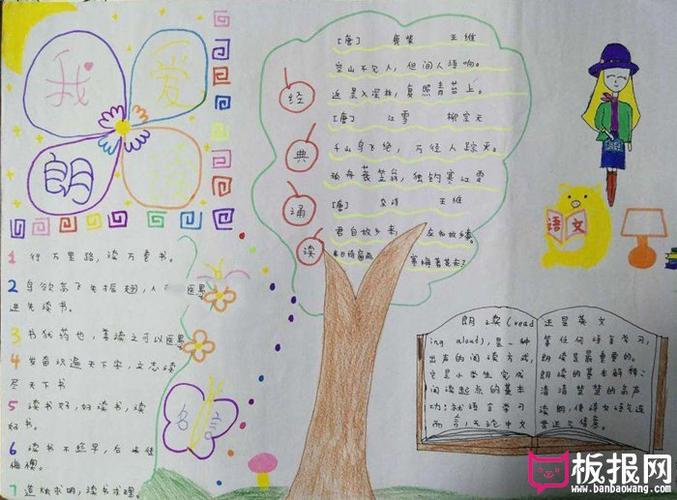 我
爱
朗
经
典
诵
读
[唐] 鹿柴 王维
空山不见人，但闻人语响。
返景入深林，复照青苔上。
[唐] 江雪 柳宗元
千山鸟飞绝，万径人踪灭
孤舟蓑笠翁，独钓寒江雪
[唐] 杂诗 王维
君自故乡来
寒梅著花未？
语文
1 行万里路，读万卷书。
2 鸟欲高飞先振翅，人
进先读书。
3 书犹药也，善读之可以医愚
4 发奋识遍天下字，立志读
尽天下书
5 读书好，好读书，读
好书。
6 读书不趁早，后来徒
悔懊。
7
名言
朗读（read
ing aloud），是一种
出声的阅读方式，
它是小学生完成
阅读起点的基本
功；就语言学习
而言，无论中文
还是英文
等任何语言学习，
朗读是最重要的。
朗读的基本解释：
清清楚楚的高声
读朗，使语文语气连
板报网
www.banbaowang.com